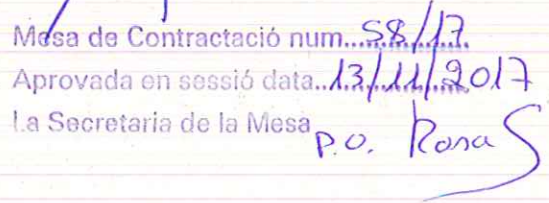 Mesa de Contractació num...58/17
Aprovada en sessió data..13/11/2017
La Secretaria de la Mesa
P.O. Rosa S